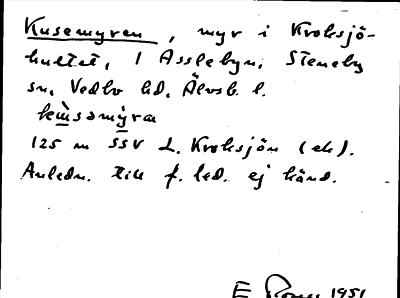 Kusemyren, myr i Kroksjö-
hultet, 1 Asslebyn, Steneby
sn, Vedbo hd, Älvsb. l.
kùsəmýra
125 m SSV L. Kroksjön (ek).
Anledn. till f. led. ej känd.
E 1951